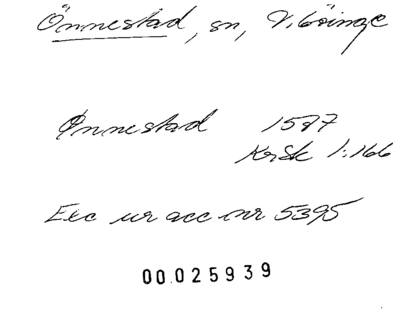 Önnestad, sn, V. Göinge
Ønnestad 1587
KrSk 1:166
Exc ur acc nr 5395
00.025939